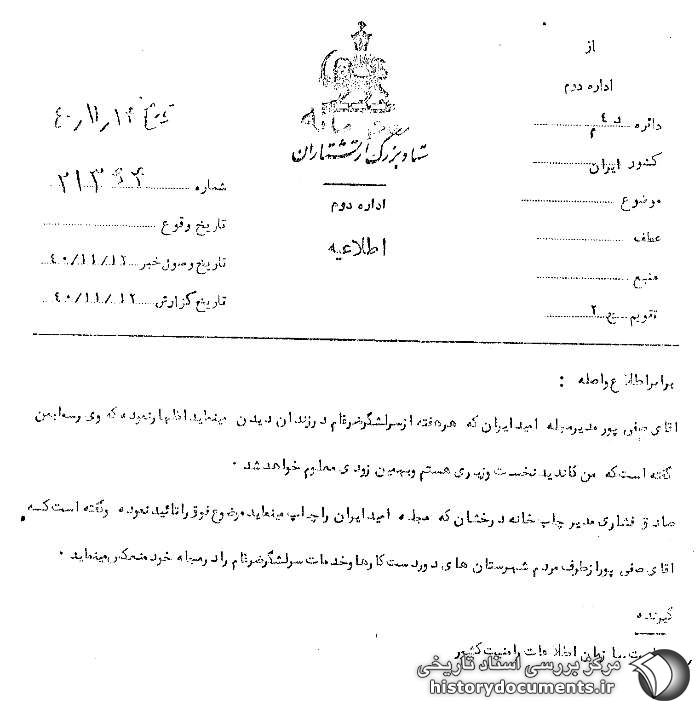 از
اداره دوم
دائره د ٤ م
کشور ایران
موضوع
عطف
منبع
تقویم ج ۲
محرمانه
ستاد بزرگ ارتشتاران
اداره دوم
اطلاعیه
تاریخ ۴۰/۱۱/۱۴
شماره
تاریخ وقوع
تاریخ وصول خبر ۴۰/۱۱/۱۲
تاریخ گزارش ۴۰/۱۱/۱۲
برابر اطلاع واصله :
آقای صفی پور مدیر مجله امید ایران که هر هفته از سرلشگر ضرغام در زندان دیدن مینماید اظهار نموده که وی رسما بمن
گفته است که من کاندید نخست وزیری هستم و بهمین زودی معلوم خواهد شد .
صادق فشاری مدیر چاپ خانه درخشان که مجله امید ایران را چاپ مینماید موضوع فوق را تائید نموده و گفته است که
آقای صفی پور از طرف مردم شهرستان های دور دست کارها و خدمات سرلشگر ضرغام را در مجله خود منعکس مینماید .
گیرنده
سازمان اطلاعات و امنیت کشور
مرکز بررسی اسناد تاریخی
historydocuments.ir